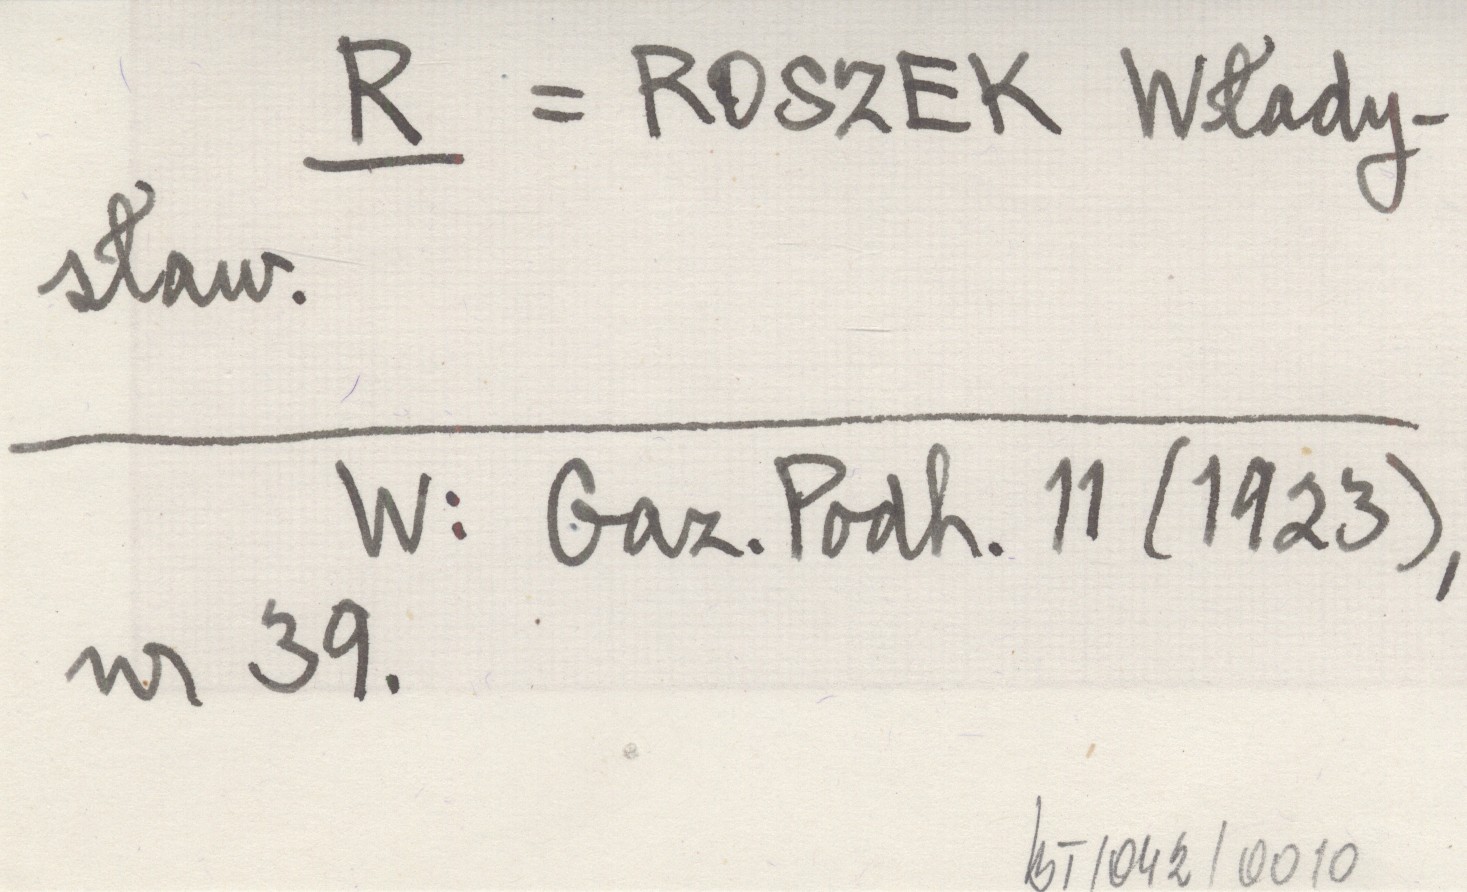 R = ROSZEK Włady-
sław.
W: Gaz. Podh. 11 (1923),
nr 39.
/042/0010